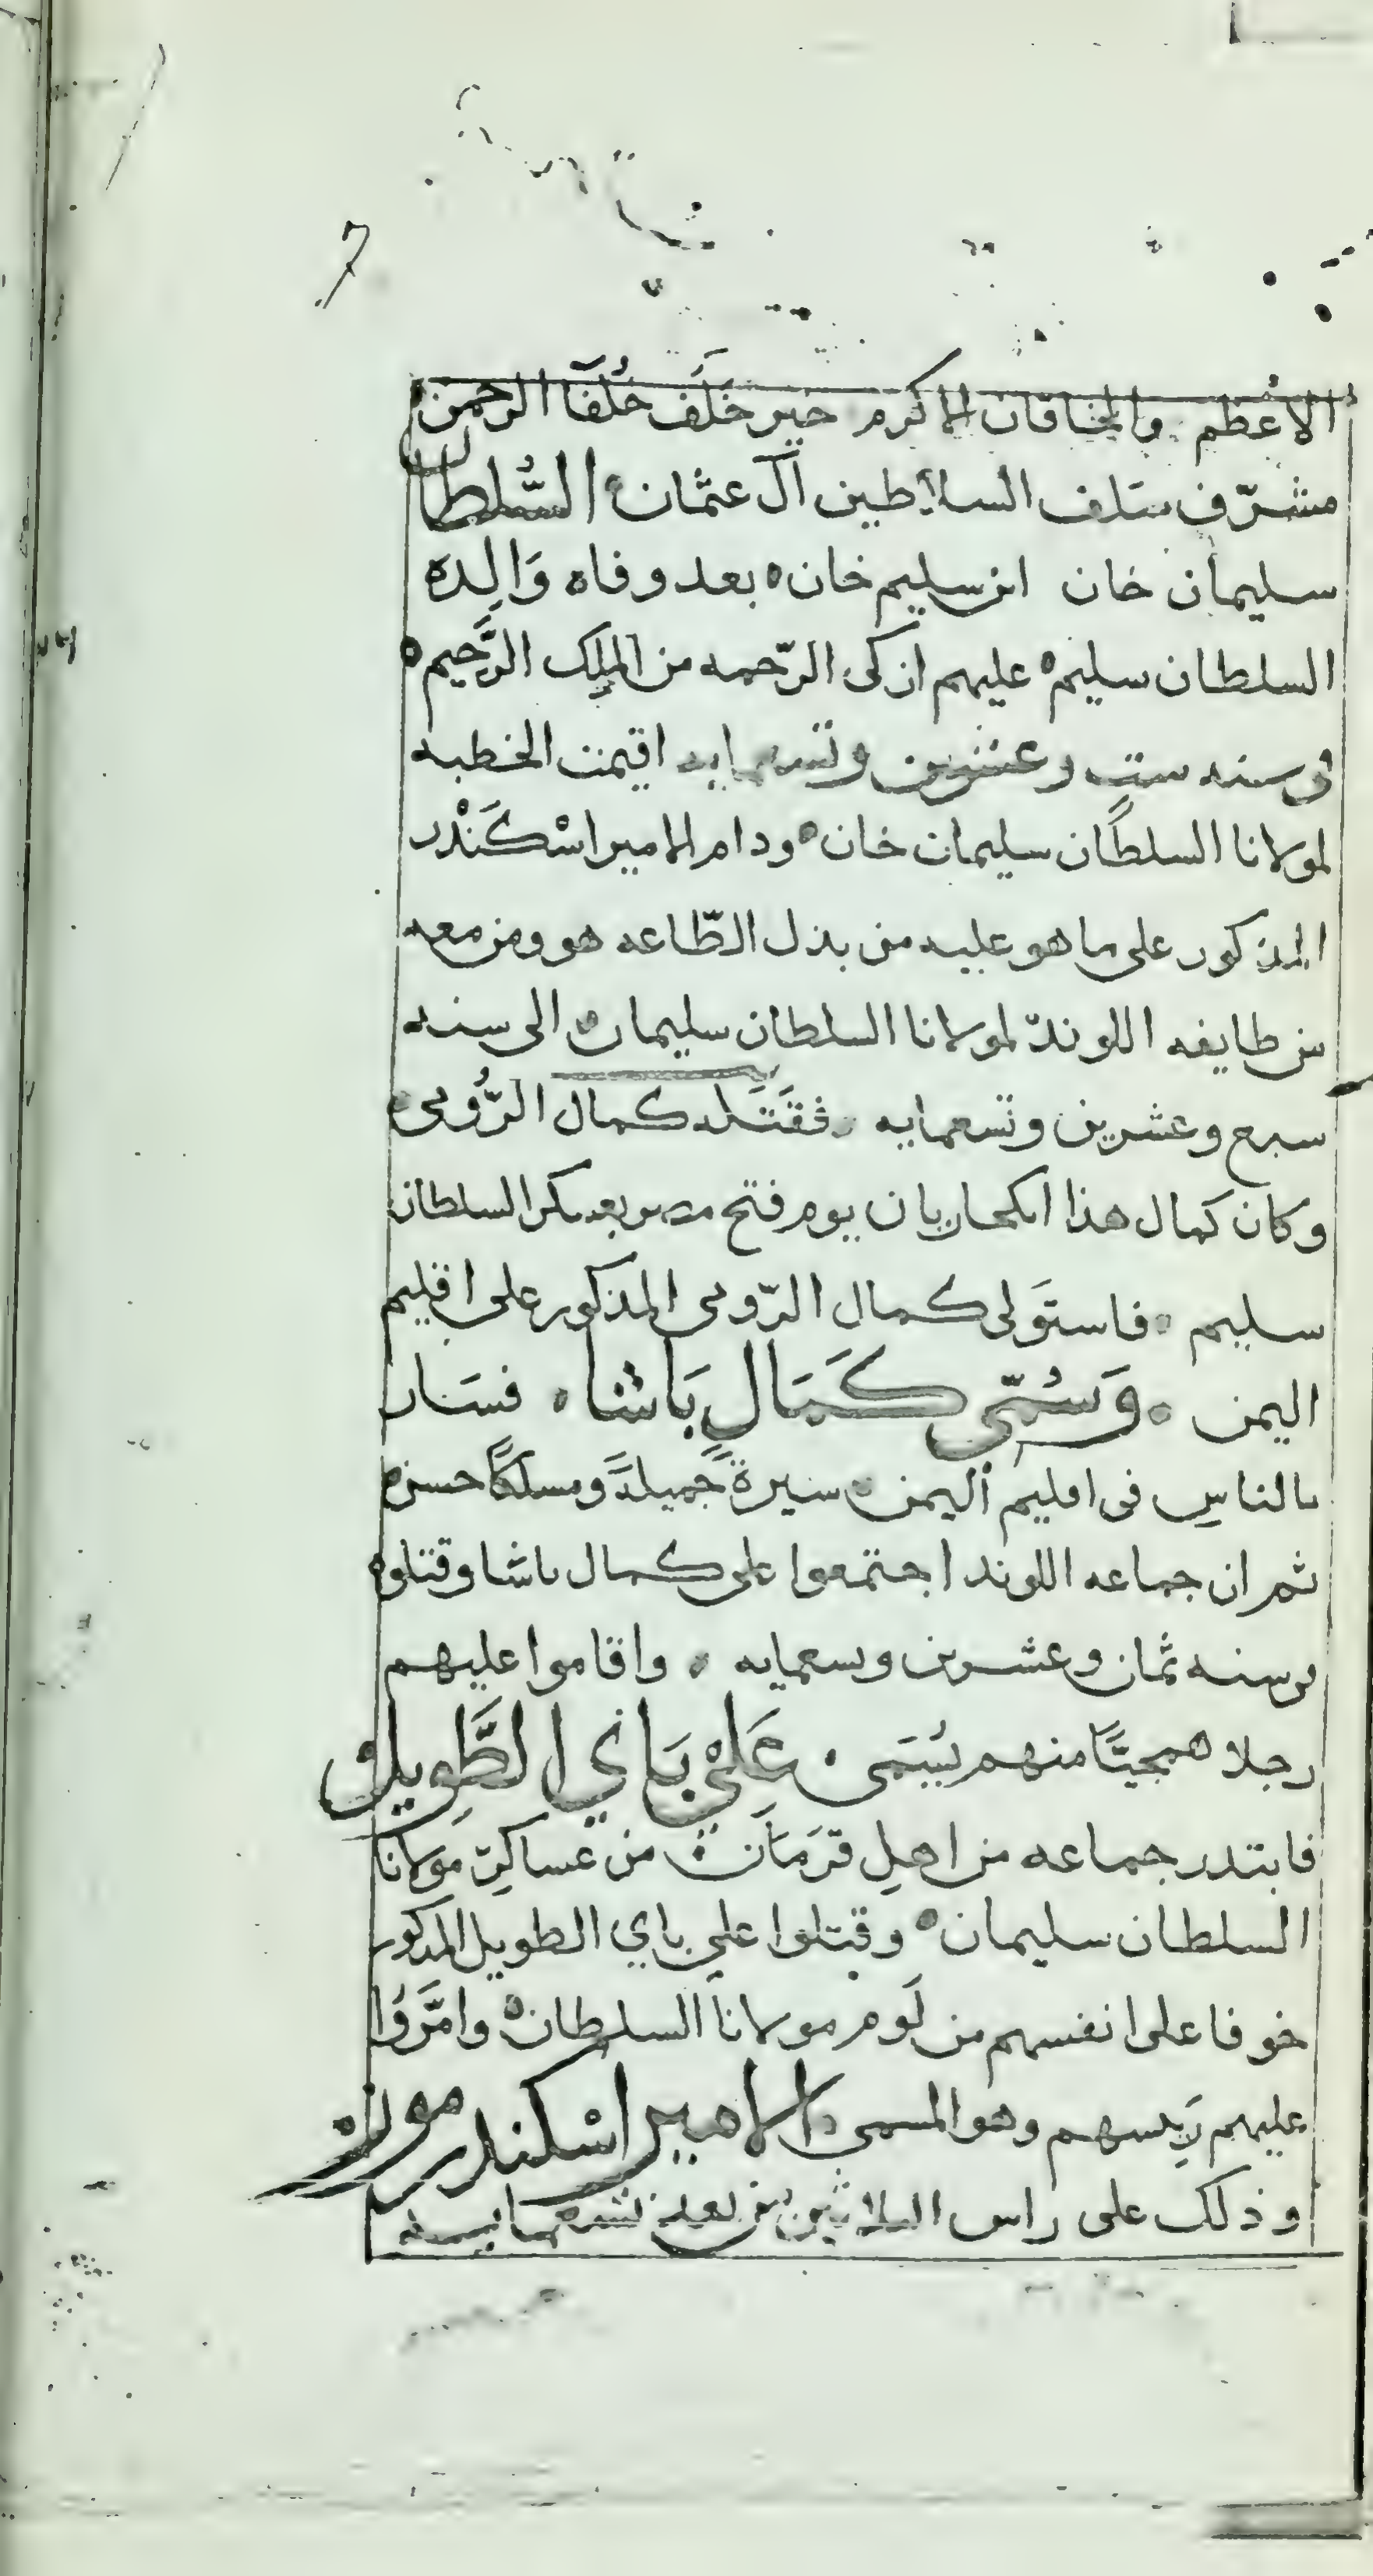 7
الاعظم والخاقان الاكرم خير خَلَف خُلَفَآ الرحمن
مشرّف سلف السلاطين آل عثمان السُّلطان
سليمان خان ابن سليم خان ه بعد وفاه وَالِده
السلطان سليم ه عليهم ازكى الرّحمه من الملِك الرَّحيم ه
في سنه ستٍ وعشرين وتسعمايه اقيمت الخطبه
لمولانا السلطان سليمان خان ه ودام الامير اسْكَنْدر
المذكور على ما هو عليه من بذل الطّاعه هو ومن معه
من طايفه اللوند لمولانا السلطان سليمان الى سنه
سبع وعشرين وتسعمايه فقَتَله كمال الرُّومي
وكان كمال هذا يوم فتح مصر السلطان
سليم ه فاستَولى كمال الرّومى المذكور على اقليم
اليمن ه وَسُمّى كَمَال بَاشا ه فسَار
بالناسِ فى اقليم اليمن ه سيرةً جَميلَةً ومسلكًا حسنه
ثم ان جماعه اللوند اجتمعوا على كمال باشا وقتلوه
في سنه ثمان وعشرين وتسعمايه ه واقاموا عليهم
رجلا همجيًّا منهم يُسَمى ه عَلِيْ بَاي الطَّوِيل
فابتدر جماعه من اهلِ قرَمَان من عساكِر مولانا
السلطان سليمان ه وقتلوا علي باي الطويل المذكور
خوفا على انفسهم من لَوم مولانا السلطان ه وامَّرَوُا
عليهم رَيِسهم وهو المسمى الامير اسْكندر موز
وذلك على راس الثلاثين بعد تسعمايه